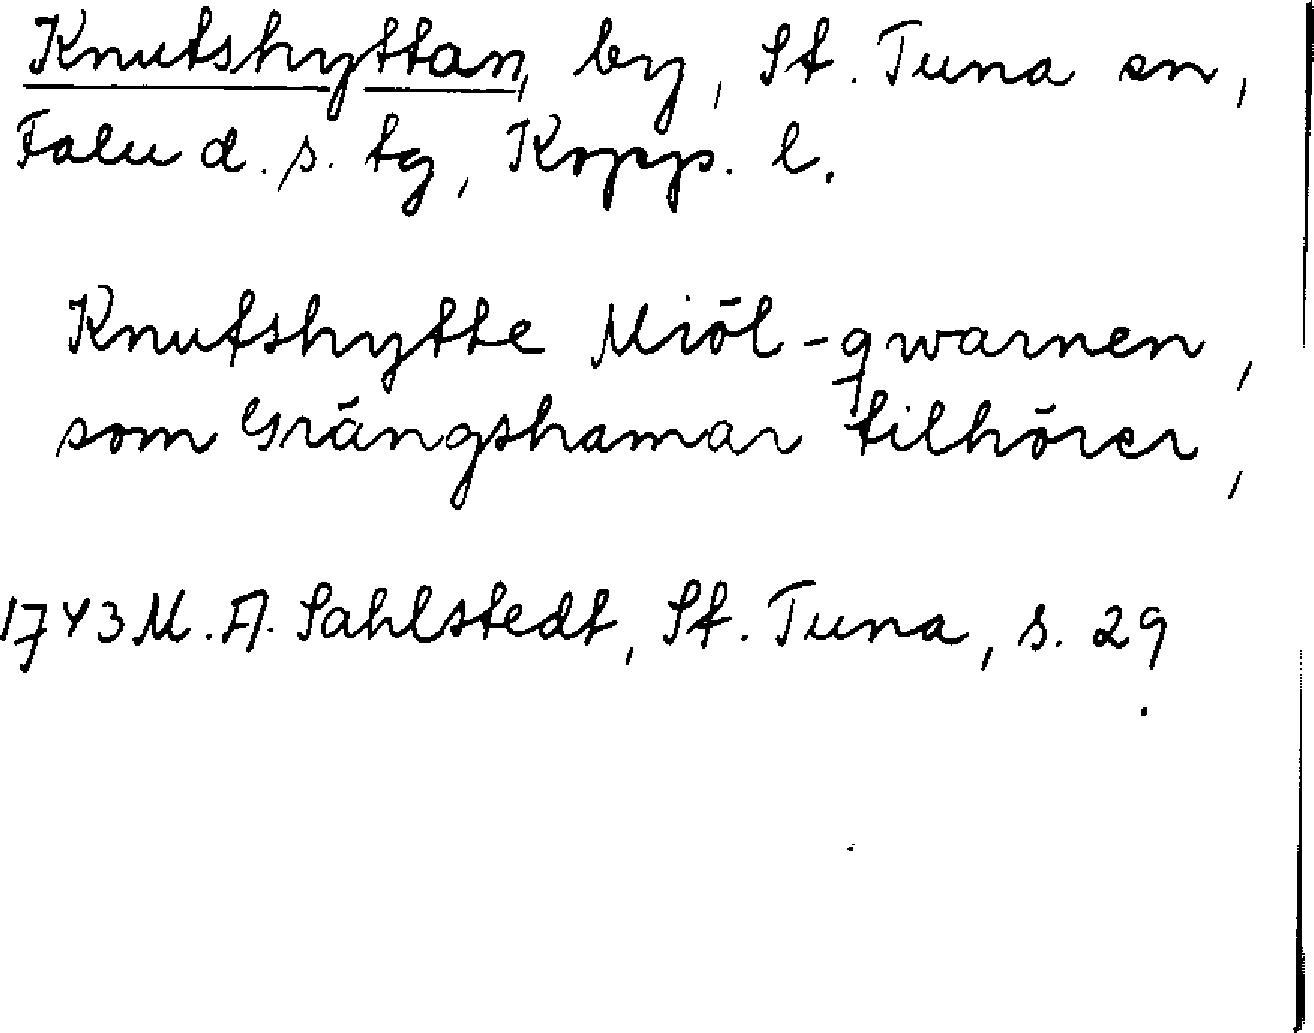 Knutshyttan, by, St. Tuna sn,
Falu d. s. tg, Kopp. l.
Knutshytte Miöl-qwarnen,
som Grängshamar tilhörer,
1743 M. A. Sahlstedt, St. Tuna, s. 29.